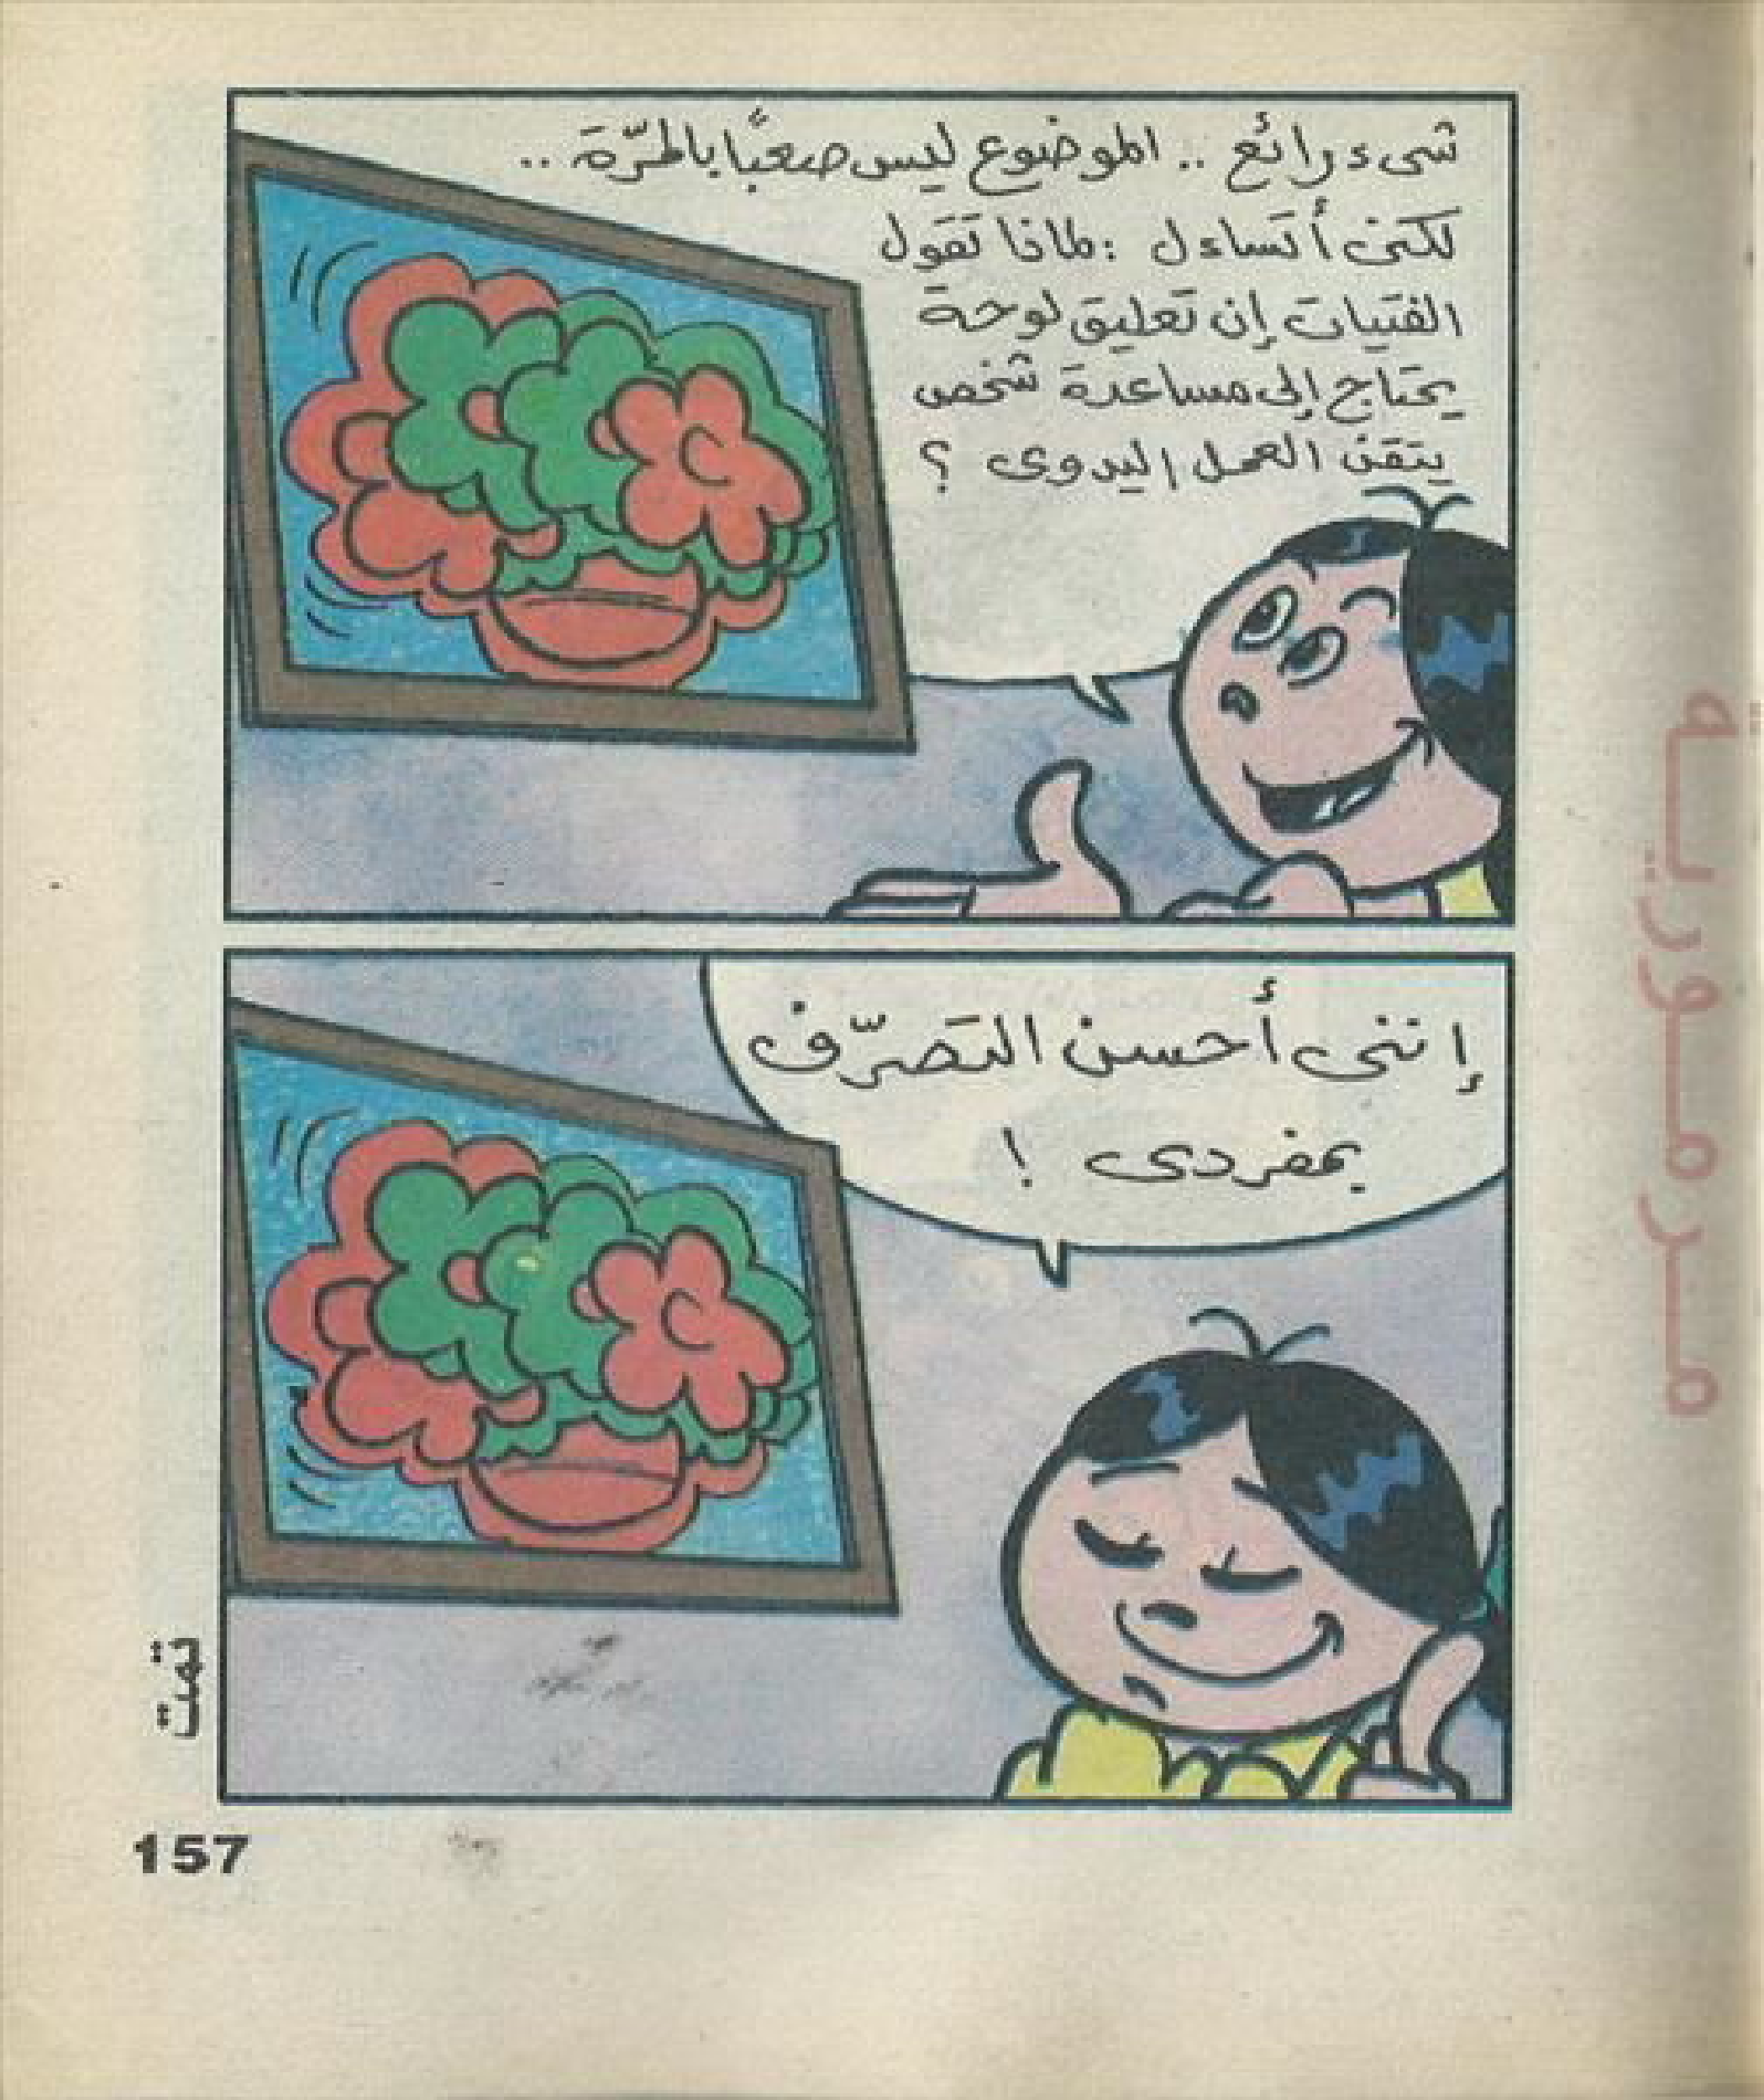 شىء رائع .. الموضوع ليس صعبًا بالمرّة ..
لكنى أتساءل : لماذا تقول
الفتيات إن تعليق لوحة
يحتاج إلى مساعدة شخص
يتقن العمل اليدوى ؟
إننى أحسن التصرّف
بمفردى !
تمت
157
مرمورية